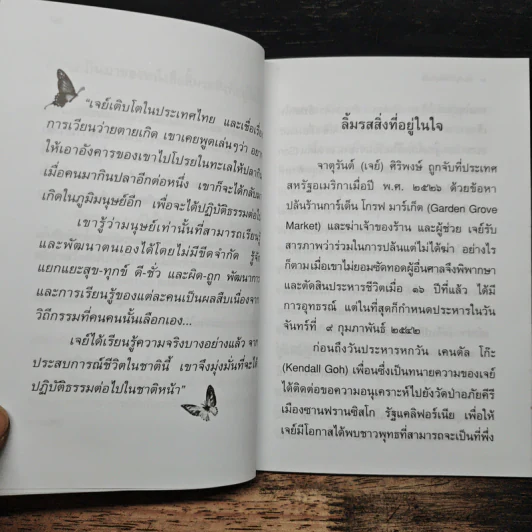 "เจย์เติบโตในประเทศไทย และเชื่อเรื่อง
การเวียนว่ายตายเกิด เขาเคยพูดเล่นๆว่า
ให้เอาอังคารของเขาไปโปรยในทะเลให้ปลากิน
เมื่อคนมากินปลาอีกต่อหนึ่ง เขาก็จะได้กลับมา
เกิดในภูมิมนุษย์อีก เพื่อจะได้ปฏิบัติธรรมต่อไป
เขารู้ว่ามนุษย์เท่านั้นที่สามารถเรียนรู้
และพัฒนาตนเองได้โดยไม่มีขีดจำกัด รู้จัก
แยกแยะสุข-ทุกข์ ดี-ชั่ว และผิด-ถูก พัฒนาการ
และการเรียนรู้ของแต่ละคนเป็นผลสืบเนื่องจาก
วิถีกรรมที่คนคนนั้นเลือกเอง...
เจย์ได้เรียนรู้ความจริงบางอย่างแล้ว จาก
ประสบการณ์ชีวิตในชาตินี้ เขาจึงมุ่งมั่นที่จะได้
ปฏิบัติธรรมต่อไปในชาติหน้า"
ลิ้มรสสิ่งที่อยู่ในใจ
จาตุรันต์ (เจย์) ศิริพงษ์ ถูกจับที่ประเทศ
สหรัฐอเมริกาเมื่อปี พ.ศ. ๒๕๒๖ ด้วยข้อหา
ปล้นร้านการ์เด็น โกรฟ มาร์เก็ต (Garden Grove
Market) และฆ่าเจ้าของร้าน และผู้ช่วย เจย์รับ
สารภาพว่าร่วมในการปล้นแต่ไม่ได้ฆ่า อย่างไร
ก็ตามเมื่อเขาไม่ยอมซัดทอดผู้อื่นศาลจึงพิพากษา
และตัดสินประหารชีวิตเมื่อ ๑๖ ปีที่แล้ว ได้มี
การอุทธรณ์ แต่ในที่สุดก็กำหนดประหารในวัน
จันทร์ที่ ๙ กุมภาพันธ์ ๒๕๔๒
ก่อนถึงวันประหารหกวัน เคนดัล โก๊ะ
(Kendall Goh) เพื่อนซึ่งเป็นทนายความของเจย์
ได้ติดต่อขอความอนุเคราะห์ไปยังวัดป่าอภัยคีรี
เมืองซานฟรานซิสโก รัฐแคลิฟอร์เนีย เพื่อให้
เจย์มีโอกาสได้พบชาวพุทธที่สามารถจะเป็นที่พึ่ง